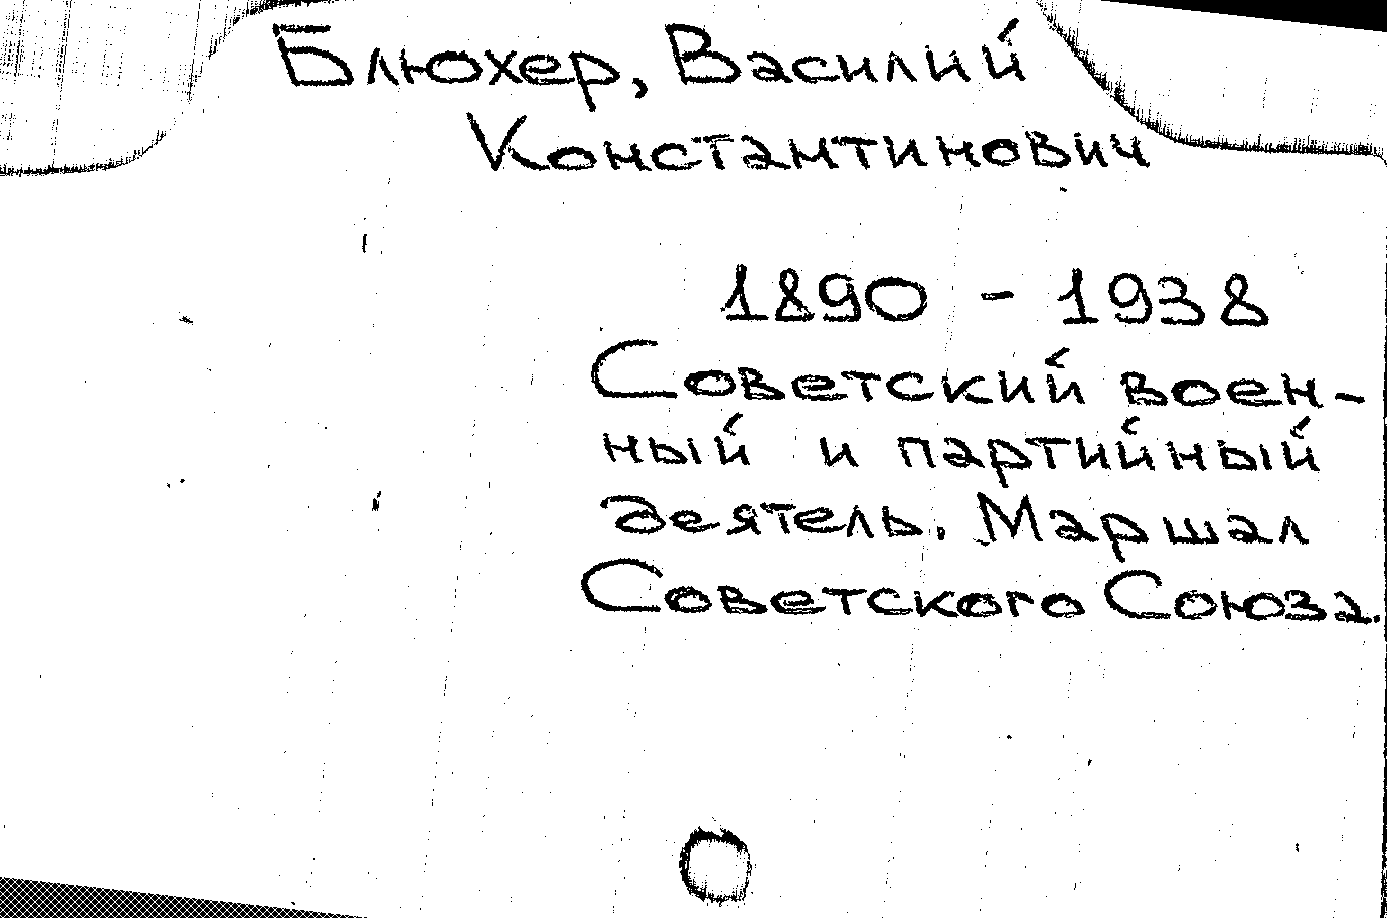 Блюхер, Василий
Константинович
1890 - 1938
Советский воен-
ный и партийный
деятель. Маршал
Советского Союза.